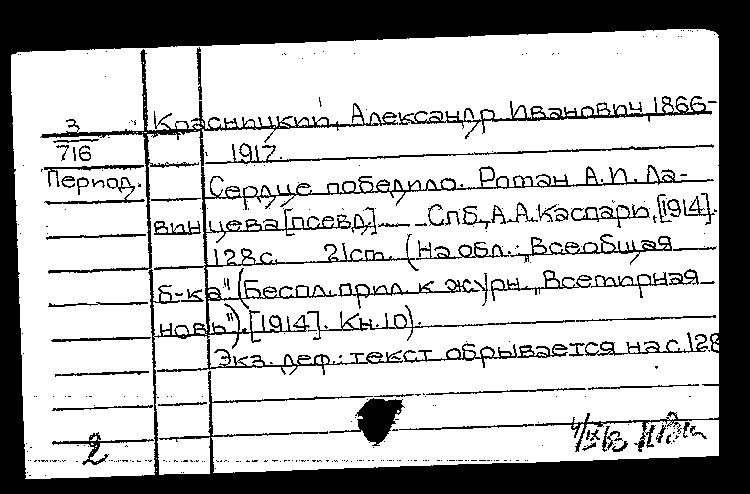 3
716
Период.
Красницкий, Александр Иванович, 1866-
1917.
Сердце победило. Роман А.И. Ла-
винцева [псевд]. Спб, А.А. Каспари, [1914].
128 с. 21 см. (На обл.: „Всеобщая
б-ка" (Беспл. прил. к журн. „Всемирная
новь"). [1914]. Кн. 10).
Экз. деф.: текст обрывается на с. 128
2